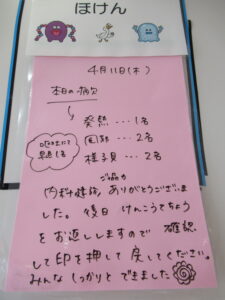 ほけん
4月11日(木)
本日の病欠
発熱・・・1名
風邪・・・2名
様子見・・・2名
嘔吐にて
早退1名
ご協力
内科健診、ありがとうございま
した。後日けんこうてちょう
をお返ししますので 確認
して印を押して戻してください。
みんなしっかりとできました